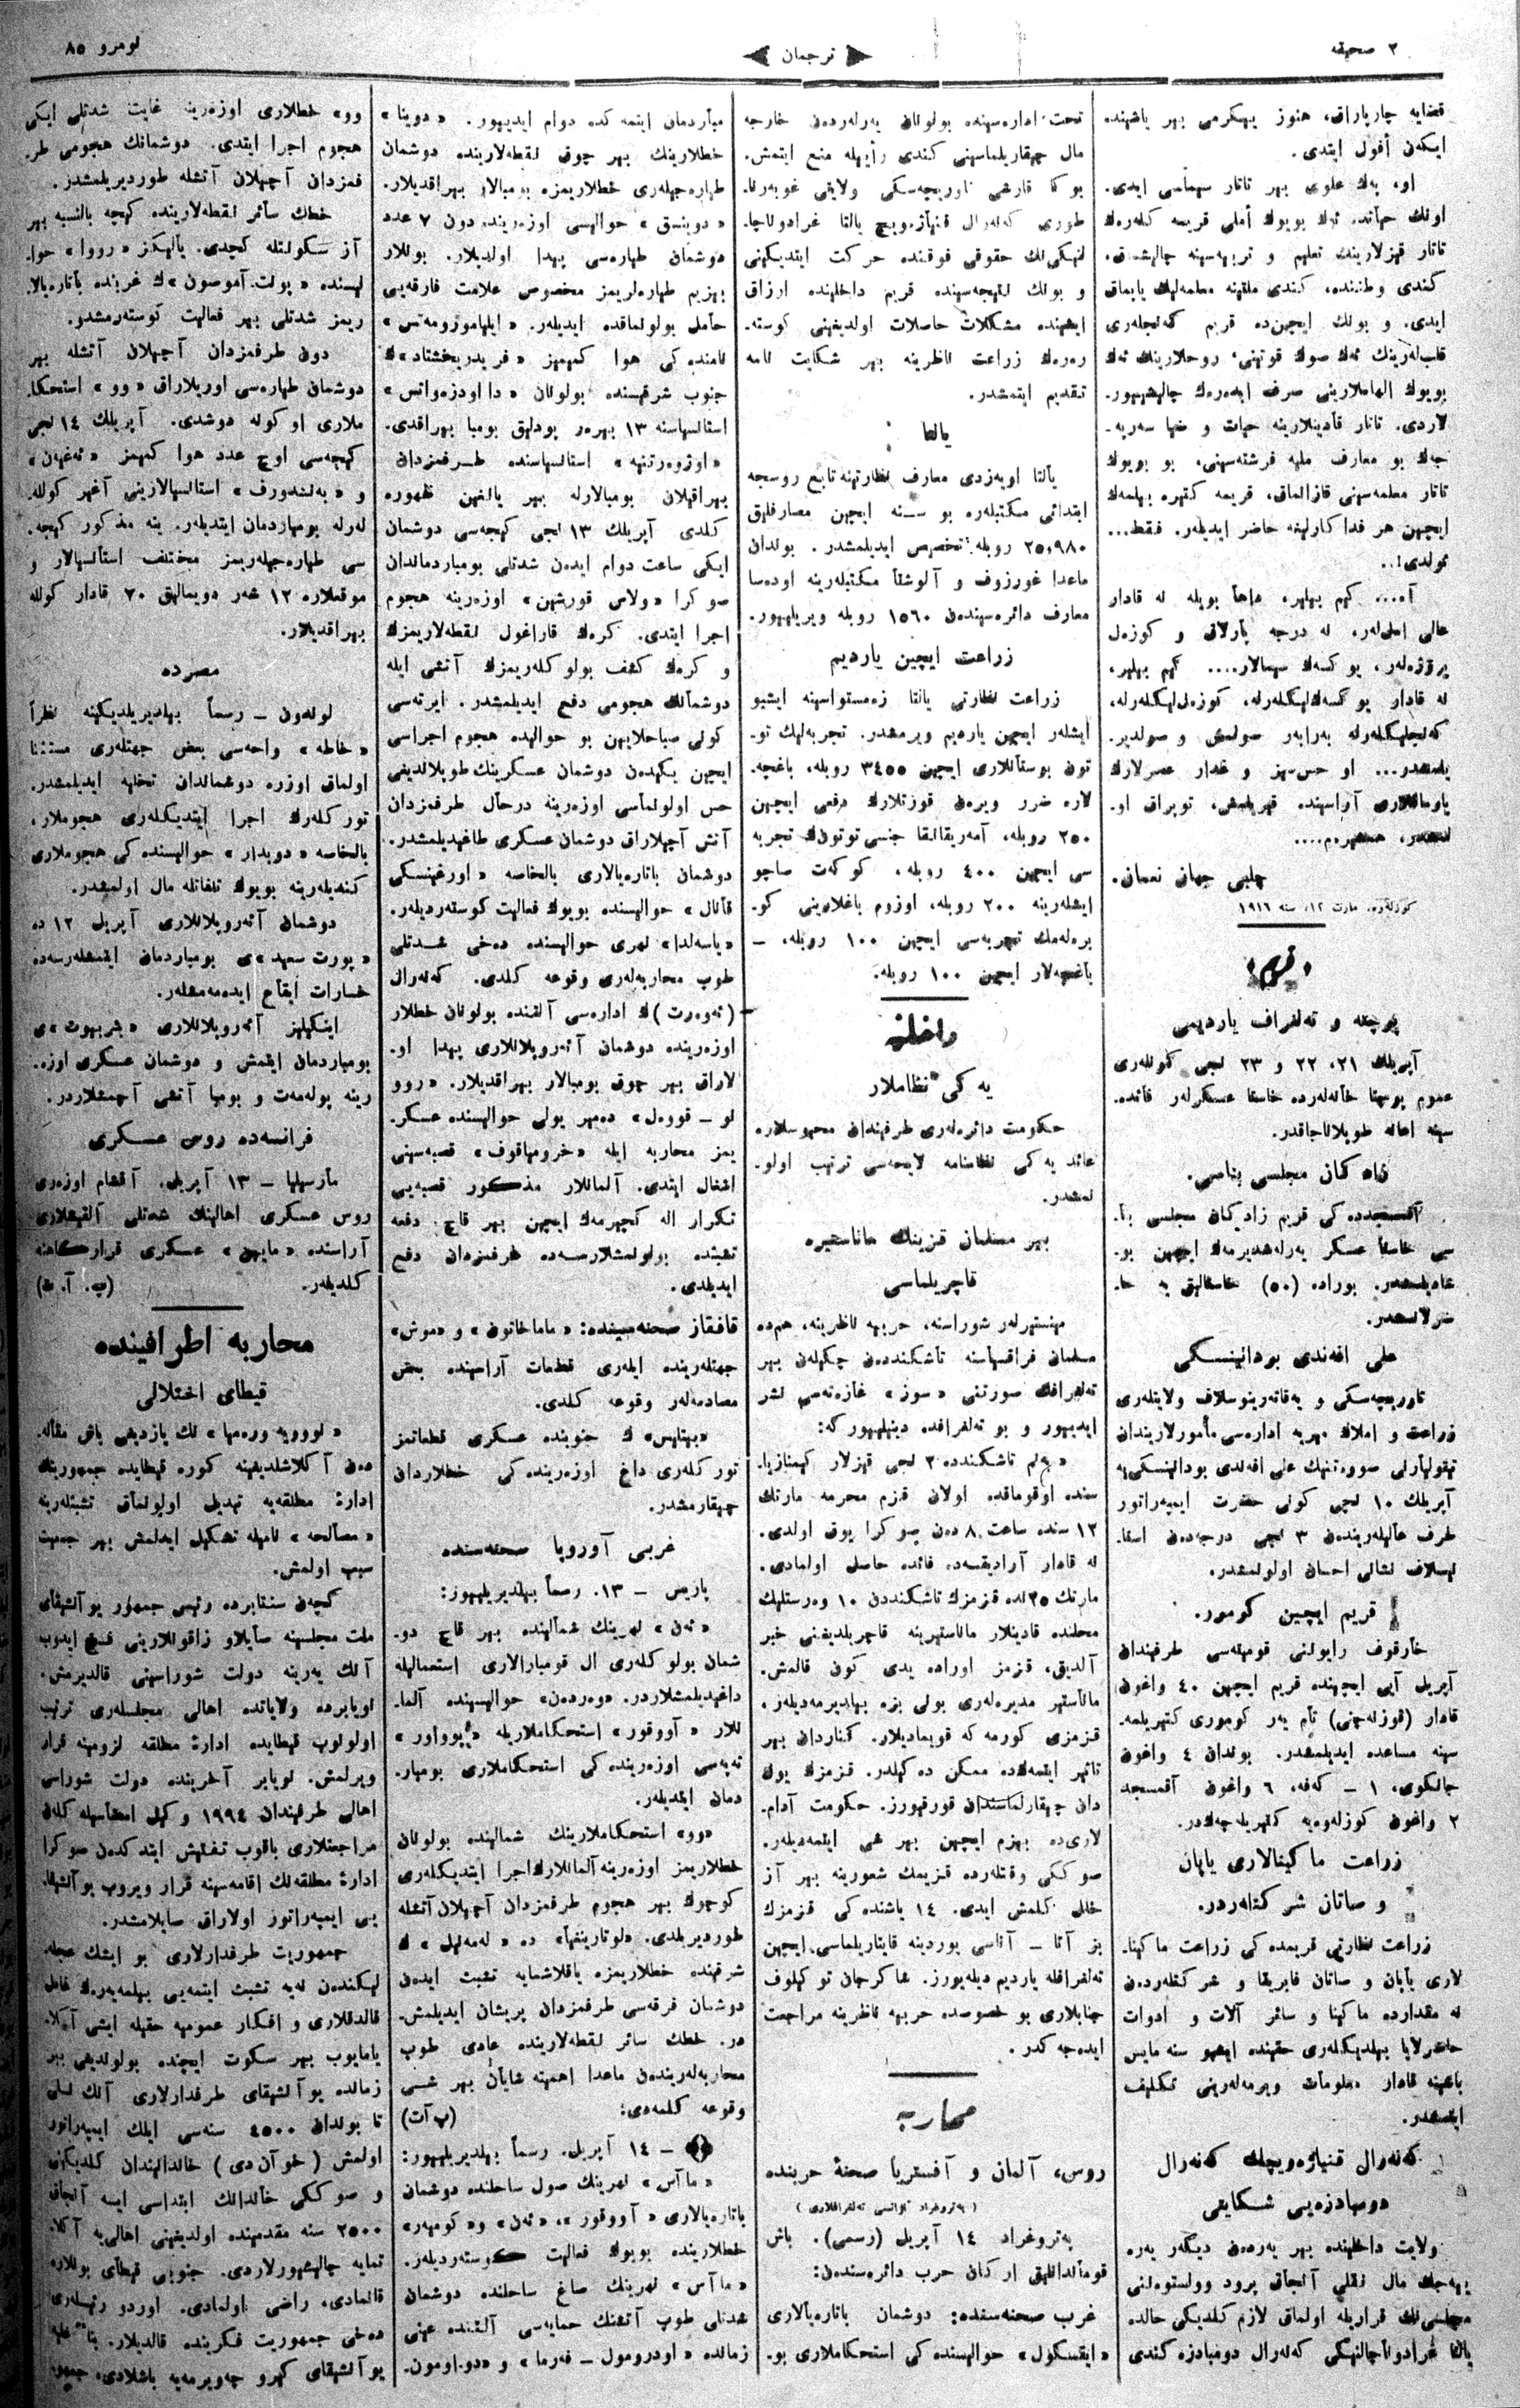 ٢ صحيفه
ترجمان
نومرو ٨٥
قضايه چارپاراق، هنوز يگرمی بير ياشنده
ايكەن أفول ايتدی.
او، پەك علوی بير تاتار سيماسی ايدی.
اونك حياتده ئەك بويوك أملی قريمه كلەرەك
تاتار قيزلارينك تعليم و تربيەسينه چاليشماق،
كندی وطننده، كندی ملتينه معلمەليك ياپماق
ايدی. و بونك ايچين‌ده قريم گەنجلەری
قلب‌لەرينك ئەك صوك قوتينی، روحلارينك ئەك
بويوك الهاملارينی صرف ايدەرەك چاليشييور-
لاردی. تاتار قادينلارينه حيات و ضيا سەرپە-
جەك بو معارف مليه فرشتەسينی، بو بويوك
تاتار معلمەسينی قازانماق، قريمه كتيره بيلمەك
ايچين هر فداكارلغه حاضر ايديلەر. فقط...
ئولدی!..
آه.... كيم بيلير، داها بويله نه قادار
عالی امللەر، نه درجه پارلاق و كوزەل
پروژەلەر، يوكسەك سيمالار.... كيم بيلير،
نه قادار يوكسەك‌ليكلەرله، كوزەل‌ليكلەرله،
گەنجليكلەرله بەرابەر صولمش و صولدير-
يلمشدر... او حس‌سز و غدار عصرلارك
پارماقلاری آراسنده قيريلمش، توپراق او-
لمشدر، همشيرەم....
چلبی جهان نعمان.
كوزلەوە، مارت ١٢، سنه ١٩١٦
قريم
پوچته و تەلغراف يارديمی
آپريلك ٢١، ٢٢ و ٢٣ نجی كونلەری
عموم پوستا خانەلەرده خاستا عسكرلەر فائده-
سينه اعانه طوپلاناجاقدر.
زادەكان مجلسی بناسی.
آقمسجدده‌كی قريم زادەكان مجلسی بنا-
سی خاستا عسكر يەرلەشديرمەك ايچين بو-
شاديلمشدر. بوراده (٥٠) خاستالق يه حا-
ضرلانمشدر.
علی افەندی بودانينسكی
تاوريچەسكی و يەقاتەرينوسلاف ولايتلەری
زراعت و املاك ميريه ادارەسی مأمورلاريندان
تيقولپارلی صورەتنيك علی افەندی بودانينسكی‌يه
آپريلك ١٠ نجی كونی حضرت ايمپەراتور
طرف عاليلەريندەن ٣ نجی درجەدەن استا-
نيسلاف نشانی احسان اولونمشدر.
قريم ايچين كومور.
خارقوف رايونلی قوميتەسی طرفيندان
آپريل آيی ايچينده قريم ايچين ٤٠ واغون
قادار (قوزله‌چی) تام يەر كوموری كتيريلمە-
سينه مساعده ايديلمشدر. بوندان ٤ واغون
جانكوی، ١ - كەفه، ٦ واغون آقمسجد
٢ واغون كوزلەوەيه كتيريلەجەكدر.
زراعت ماكينالاری ياپان
و صاتان شركتلەردر.
زراعت نظارتی قريمده‌كی زراعت ماكينا-
لاری ياپان و صاتان فابريقا و شركتلەردەن
نه مقدارده ماكينا و سائر آلات و ادوات
حاضرلايا بيلديكلەری حقينده ايشبو سنه مايس
باشينه قادار معلومات ويرمەلەرينی تكليف
ايتمشدر.
كەنەرال قنيازەويچك كەنەرال
دومبادزەيی شكايتی
ولايت داخلينده بير يەردەن ديگەر يەره
ييەجك مال نقلی آنجاق پرود وولستوەننی
مجلسی‌نك قراريله اولماق لازم كلديكی حالده
يالتا غرادوناچالنيكی كەنەرال دومبادزه كندی
تحت ادارەسينده بولونان يەرلەردەن خارجه
مال چيقاريلماسينی كندی رأييله منع ايتمش.
بوكا قارشی تاوريچەسكی ولايتی غوبەرنا-
طوری كەنەرال قنيازەويچ يالتا غرادوناچا-
لنيكی‌نك حقوقی فوقنده حركت ايتديكينی
و بونك نتيجەسينده قريم داخلينده ارزاق
ايشينده مشكلات حاصلات اولديغينی كوسته-
رەرەك زراعت ناظرينه بير شكايت نامه
تقديم ايتمشدر.
يالتا
يالتا اويەزدی معارف نظارتينه تابع روسجه
ابتدائی مكتبلەره بو سنه ايچين مصارفلق
٢٥،٩٨٠ روبله تخصيص ايديلمشدر. بوندان
ماعدا غورزوف و آلوشتا مكتبلەرينه اودەسا
معارف دائرەسيندەن ١٥٦٠ روبله ويريلييور.
زراعت ايچين يارديم
زراعت نظارتی يالتا زەمستواسينه ايشبو
ايشلەر ايچين يارديم ويرمشدر. تجربەليك تو-
تون بوستانلاری ايچين ٣٤٥٥ روبله، باغچه-
لاره ضرر ويرەن قورتلارك دفعی ايچين
٢٥٠ روبله، آمەريقانقا جنسی توتونك تجربه
سی ايچين ٤٠٠ روبله، كوكەت صاچو
ايشلەرينه ٢٠٠ روبله، اوزوم باغلارينی كو-
برەلەمك تجربەسی ايچين ١٠٠ روبله، -
باغچەلار ايچين ١٠٠ روبله.
داخليه
يەكی نظاملار
حكومت دائرەلەری طرفيندان محبوسلاره
عائد يەكی نظامنامه لايحەسی ترتيب اولو-
نمشدر.
بير مسلمان قيزينك ماناستيره
قاچريلماسی
مينيستيرلەر شوراسنه، حربيه ناظرينه، همده
مسلمان فراقسياسنه تاشكنددەن چكيلەن بير
تەلغرافك صورتنی «سوز» غازەتەسی نشر
ايدييور و بو تەلغرافده دينيلييور كه:
تاشكندده ٢ نجی قيزلار كيمنازيا-
سنده اوقوماقده اولان قيزم محرمه مارتك
١٢ سنده ساعت ٨ دەن صوكرا يوق اولدی.
نه قادار آراديقسەده فائده حاصل اولمادی.
مارتك ٢٥ نده قيزمزك تاشكنددن ١٠ وەرستليك
محلنده قادينلار ماناستيرينه قاچريلديغنی خبر
آلديق، قيزمز اوراده يدی كون قالمش.
ماناستير مديرەلەری بونی بزه بيلديرمەديلەر.
قيزمزی كورمەكه قويماديلار. كيناردان بير
تاثير ايتمەك‌ده ممكن دەكلدر. قيزمزك يوك
دان چيقارلماسندان قورقيورز. حكومت آدام-
لاری‌ده بيزم ايچين بير شی ايتمەديلەر.
صوككی وقتلەرده قيزيمك شعورينه بير آز
خلل كلمش ايدی. ١٤ ياشنده‌كی قيزمزك
بز آتا - آناسی يوردينه قايتاريلماسی ايچين
تەلغرافله يارديم ديلەيورز. شاكرجان توكيلوف
جنابلاری بو خصوصده حربيه ناظرينه مراجعت
ايدەجەكدر.
محاربه
روس، آلمان و آفستريا صحنۀ حربنده
(پەتروغراد آژانسی تەلغرافلاری)
پەتروغراد ١٤ آپريل (رسمی). باش
قوماندانلق اركان حرب دائرەسندەن:
غرب صحنەسنده: دوشمان باتارەيالاری
«ايقسكول» حواليسنده‌كی استحكاملاری بو-
مباردمان ايتمەكده دوام ايدييور. «دوينا»
خطلارينك بير چوق نقطەلارينده دوشمان
طيارەجيلەری خطلاريمزه بومبالار بيراقديلار.
«دوينسق» حواليسی اوزەرينده دون ٧ عدد
دوشمان طيارەسی پيدا اولديلار. بونلار
بيزيم طيارەلريمز مخصوص علامت فارقەيی
حامل بولونماقده ايديلەر. «ايليا‌موزومەتس»
نامنده‌كی هوا كميمز «فريدريخشتاد»ك
جنوب شرقيسنده بولونان «دااودزەواتس»
استانسياسنه ١٣ بيرەر پودلق بومبا بيراقدی.
«اوزوەرتنيه» استانسياسنده طرفمزدان
بيراقيلان بومبالارله بير يانغين ظهوره
كلدی آپريلك ١٣ نجی كيجەسی دوشمان
ايكی ساعت دوام ايدەن شدتلی بومباردماندان
صوكرا «ولاس قورشين» اوزەرينه هجوم
اجرا ايتدی. كرەك قاراغول نقطەلاريمزك
و كرەك كشف بولوكلەريمزك آتشی ايله
دوشمانك هجومی دفع ايديلمشدر. ايرتەسی
كونی صباحلايين بو حواليده هجوم اجراسی
ايچين يكيدەن دوشمان عسكرينك طوپلانديغی
حس اولونماسی اوزەرينه درحال طرفمزدان
آتش آچيلاراق دوشمان عسكری طاغيديلمشدر.
دوشمان باتارەيالاری بالخاصه «اورغينسكی
قانال» حواليسنده بويوك فعاليت كوستەرديلەر.
«ياسەلدا» نهری حواليسنده دەخی شدتلی
طوپ محاربەلەری وقوعه كلدی. كەنەرال
(ئەوەرت)ك ادارەسی آلتنده بولونان خطلار
اوزەرينده دوشمان آئەروپلانلاری پيدا او-
لاراق بير چوق بومبالار بيراقديلار. «روو
نو - قووەل» دەمير يولی حواليسنده عسكر-
يمز محاربه ايله «خرومياقوف» قصبەسينی
اشغال ايتدی. آلمانلار مذكور قصبەيی
تكرار اله كچيرمەك ايچين بير قاچ دفعه
تشبثده بولونمشلارسەده طرفمزدان دفع
ايديلدی.
قافقاز صحنەسينده: «ماماخاتون» و «موش»
جهتلەرينده ايلەری قطعات آراسينده بعض
مصادمەلەر وقوعه كلدی.
«بيتليس»ك جنوبنده عسكری قطعاتمز
توركلەری داغ اوزەرينده‌كی خطلاردان
چيقارمشدر.
غربی آوروپا صحنەسنده
پاريس - ١٣. رسماً بيلديريلييور:
«ئەن» نهرينك شمالينده بير قاچ دو-
شمان بولوكلەری ال قومبارالاری استعماليله
داغيديلمشلاردر. «وەردەن» حواليسينده آلما-
نلار «آووقور» استحكاملاريله «پوواور»
تەپەسی اوزەرينده‌كی استحكاملاری بومبار-
دمان ايتديلەر.
«وو» استحكاملارينك شمالينده بولونان
خطلاريمز اوزەرينه آلمانلارك اجرا ايتديكلەری
كوچوك بير هجوم طرفمزدان آچيلان آتشله
طورديريلدی. «لوتارينغيا» ده «لەمەنيل»ك
شرقينده خطلاريمزه ياقلاشمايه تشبث ايدەن
دوشمان فرقەسی طرفمزدان پريشان ايديلمش-
در. خطك سائر نقطەلارينده عادی طوپ
محاربەلەريندەن ماعدا اهميته شايان بير شی
وقوعه كلمەدی: (پ آت)
- ١٤ آپريل. رسماً بيلديريلييور:
«ماآس» نهرينك صول ساحلنده دوشمان
باتارەيالاری «آووقور»، «ئەن» و «كوميەر»
خطلارينده بويوك فعاليت كوستەرديلەر.
«ماآس» نهرينك صاغ ساحلنده دوشمان
شدتلی طوپ آتشنك حمايەسی آلتنده عينی
زمانده «اودرومول - فەرما» و «دواومون-
وو» خطلاری اوزەرينه غايت شدتلی ايكی
هجوم اجرا ايتدی. دوشمانك هجومی طر-
فمزدان آچيلان آتشله طورديريلمشدر.
خطك سائر نقطەلارينده كيجه بالنسبه بير
آز سكونتله كچدی. يالكز «رووا» حوا-
ليسنده «پونت-آموصون»ك غربنده باتارەيالا-
ريمز شدتلی بير فعاليت كوستەرمشدو.
دون طرفمزدان آچيلان آتشله بير
دوشمان طيارەسی اوريلاراق «وو» استحكا-
ملاری اوكونه دوشدی. آپريلك ١٤ نجی
كيجەسی اوچ عدد هوا كميمز «ئەغەن»
و «بەلندورف» استانسيالارينی آغير كولله-
لەرله بومباردمان ايتديلەر. ينه مذكور كيجه-
سی طيارەجيلەريمز مختلف استانسيالار و
موقعلاره ١٢ شەر دويمالق ٢٠ قادار كولله
بيراقديلار.
مصرده
لوندون - رسماً بيلديريلديكينه نظراً
«خاطه» واحەسی بعض جهتلەری مستثنا
اولماق اوزره دوشماندان تخليه ايديلمشدر.
توركلەرك اجرا ايتديكلەری هجوملار،
بالخاصه «دويدار» حواليسنده‌كی هجوملاری
كنديلەرينه بويوك تلفاتله مال اولمشدر.
دوشمان آئەروپلانلاری آپريل ١٢ ده
«پورت سعيد»ی بومباردمان ايتمشلەرسەده
خسارات ايقاع ايدەمەمشلەر.
اينكيليز آئەروپلانلاری
بومباردمان ايتمش و دوشمان عسكری اوزە-
رينه پولەمەت و بومبا آتشی آچمشلاردر.
فرانسەده روس عسكری
مارسيليا - ١٣ آپريل. آقشام اوزەری
روس عسكری اهالينك شدتلی آلقيشلاری
آراسنده «مايين» عسكری قراركاهنه
كلديلەر. (پ. آ. ت)
محاربه اطرافينده
قيطای اختلالی
«نوويه ورەميا» نك يازديغی باش مقاله-
دەن آكلاشلديغينه كوره قيطايده جمهورينك
ادارۀ مطلقەيه تبديل اولونماق تشبثلەرينه
«مصالحه» ناميله تشكيل ايدلمش بير جمعيت
سبب اولمش.
كچەن سنتابرده رئيس جمهور يوآنشيقای
ملت مجلسينه صايلاو زاقونلارينی فسخ ايدوب
آنك يەرينه دولت شوراسينی قالديرمش.
اويابرده ولاياتده اهالی مجلسلەری ترتيب
اولونوب قيطايده ادارۀ مطلقه لزومينه قرار
ويرلمش. نويابر آخرينده دولت شوراسی
اهالی طرفيندان ١٩٩٤ وكيل امضاسيله كلەن
مراجعتلاری باقوب تفتيش ايتدكدەن صوكرا
ادارۀ مطلقەنك اقامەسينه قرار ويروب يوآنشيقا-
يی ايمپەراتور اولاراق صايلامشدر.
جمهوريت طرفدارلاری بو ايشك عجله-
ليكندەن نەيه تشبث ايتمەيی بيلمەيەرەك غافل
قالدقلاری و افكار عموميه حقيله ايشی آكلا-
يامايوب بير سكوت ايچنده بولونديغی بير
زمانده يوآنشيقای طرفدارلاری آنك نسلی
تا بوندان ٤٥٠٠ سنەسی ايلك ايمپەراتور
اولمش (خوآن‌دی) خاندانيندان كلديكينی
و صوككی خاندانك ابتداسی ايسه آنجاق
٢٥٠٠ سنه مقدمينده اولديغينی اهالی‌يه آكلا-
تمايه چاليشيورلاردی. جنوبی قيطای بونلاره
قانمادی، راضی اولمادی. اوردو رئيسلەری
دەخی جمهوريت فكرينده قالديلار. بناً عليه
يوآنشيقای كيرو چەويرمەيه باشلادی.